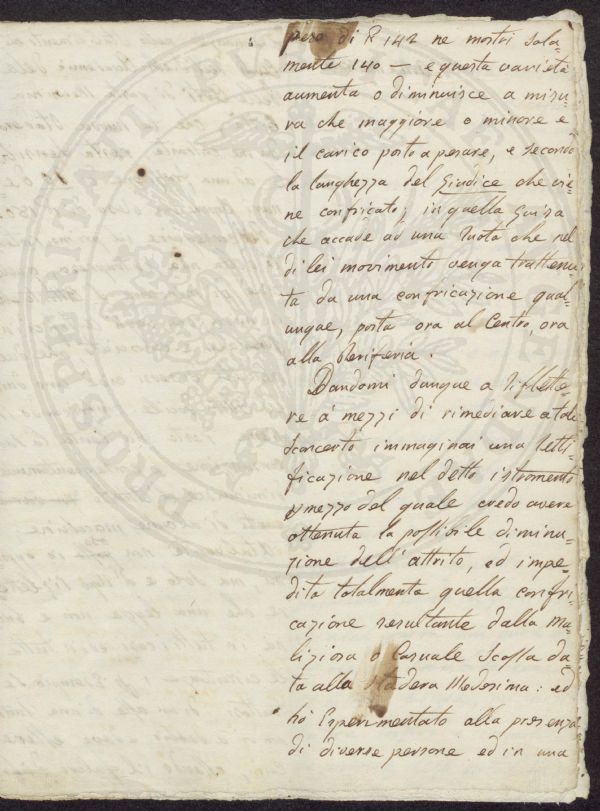 peso di ℔ 142 ne mostri sola-
mente 140 — e questa varietà
aumenta o diminuisce a misu-
ra che maggiore o minore e
il carico posto a pesare, e secondo
la langhezza del Giudice che vie-
ne confricato; in quella Guisa
che accade ad una Ruota che nel
di lei movimento venga trattenu-
ta da una confricazione qual-
unque, posta ora al Centro, ora
alla Periferia.
Dandomi dunque a riflette-
re a' mezzi di rimediare a tale
Sconcerto immaginai una retti-
ficazione nel detto istromento
p mezzo del quale credo avere
ottenuta la possibile diminu-
zione dell' attrito, ed impe-
dita totalmente quella confri-
cazione resultante dalla Ma-
liziosa o Casuale Scossa da-
ta alla Stadera Medesima: ed
hò Esperimentato alla presenza
di diverse persone ed in una